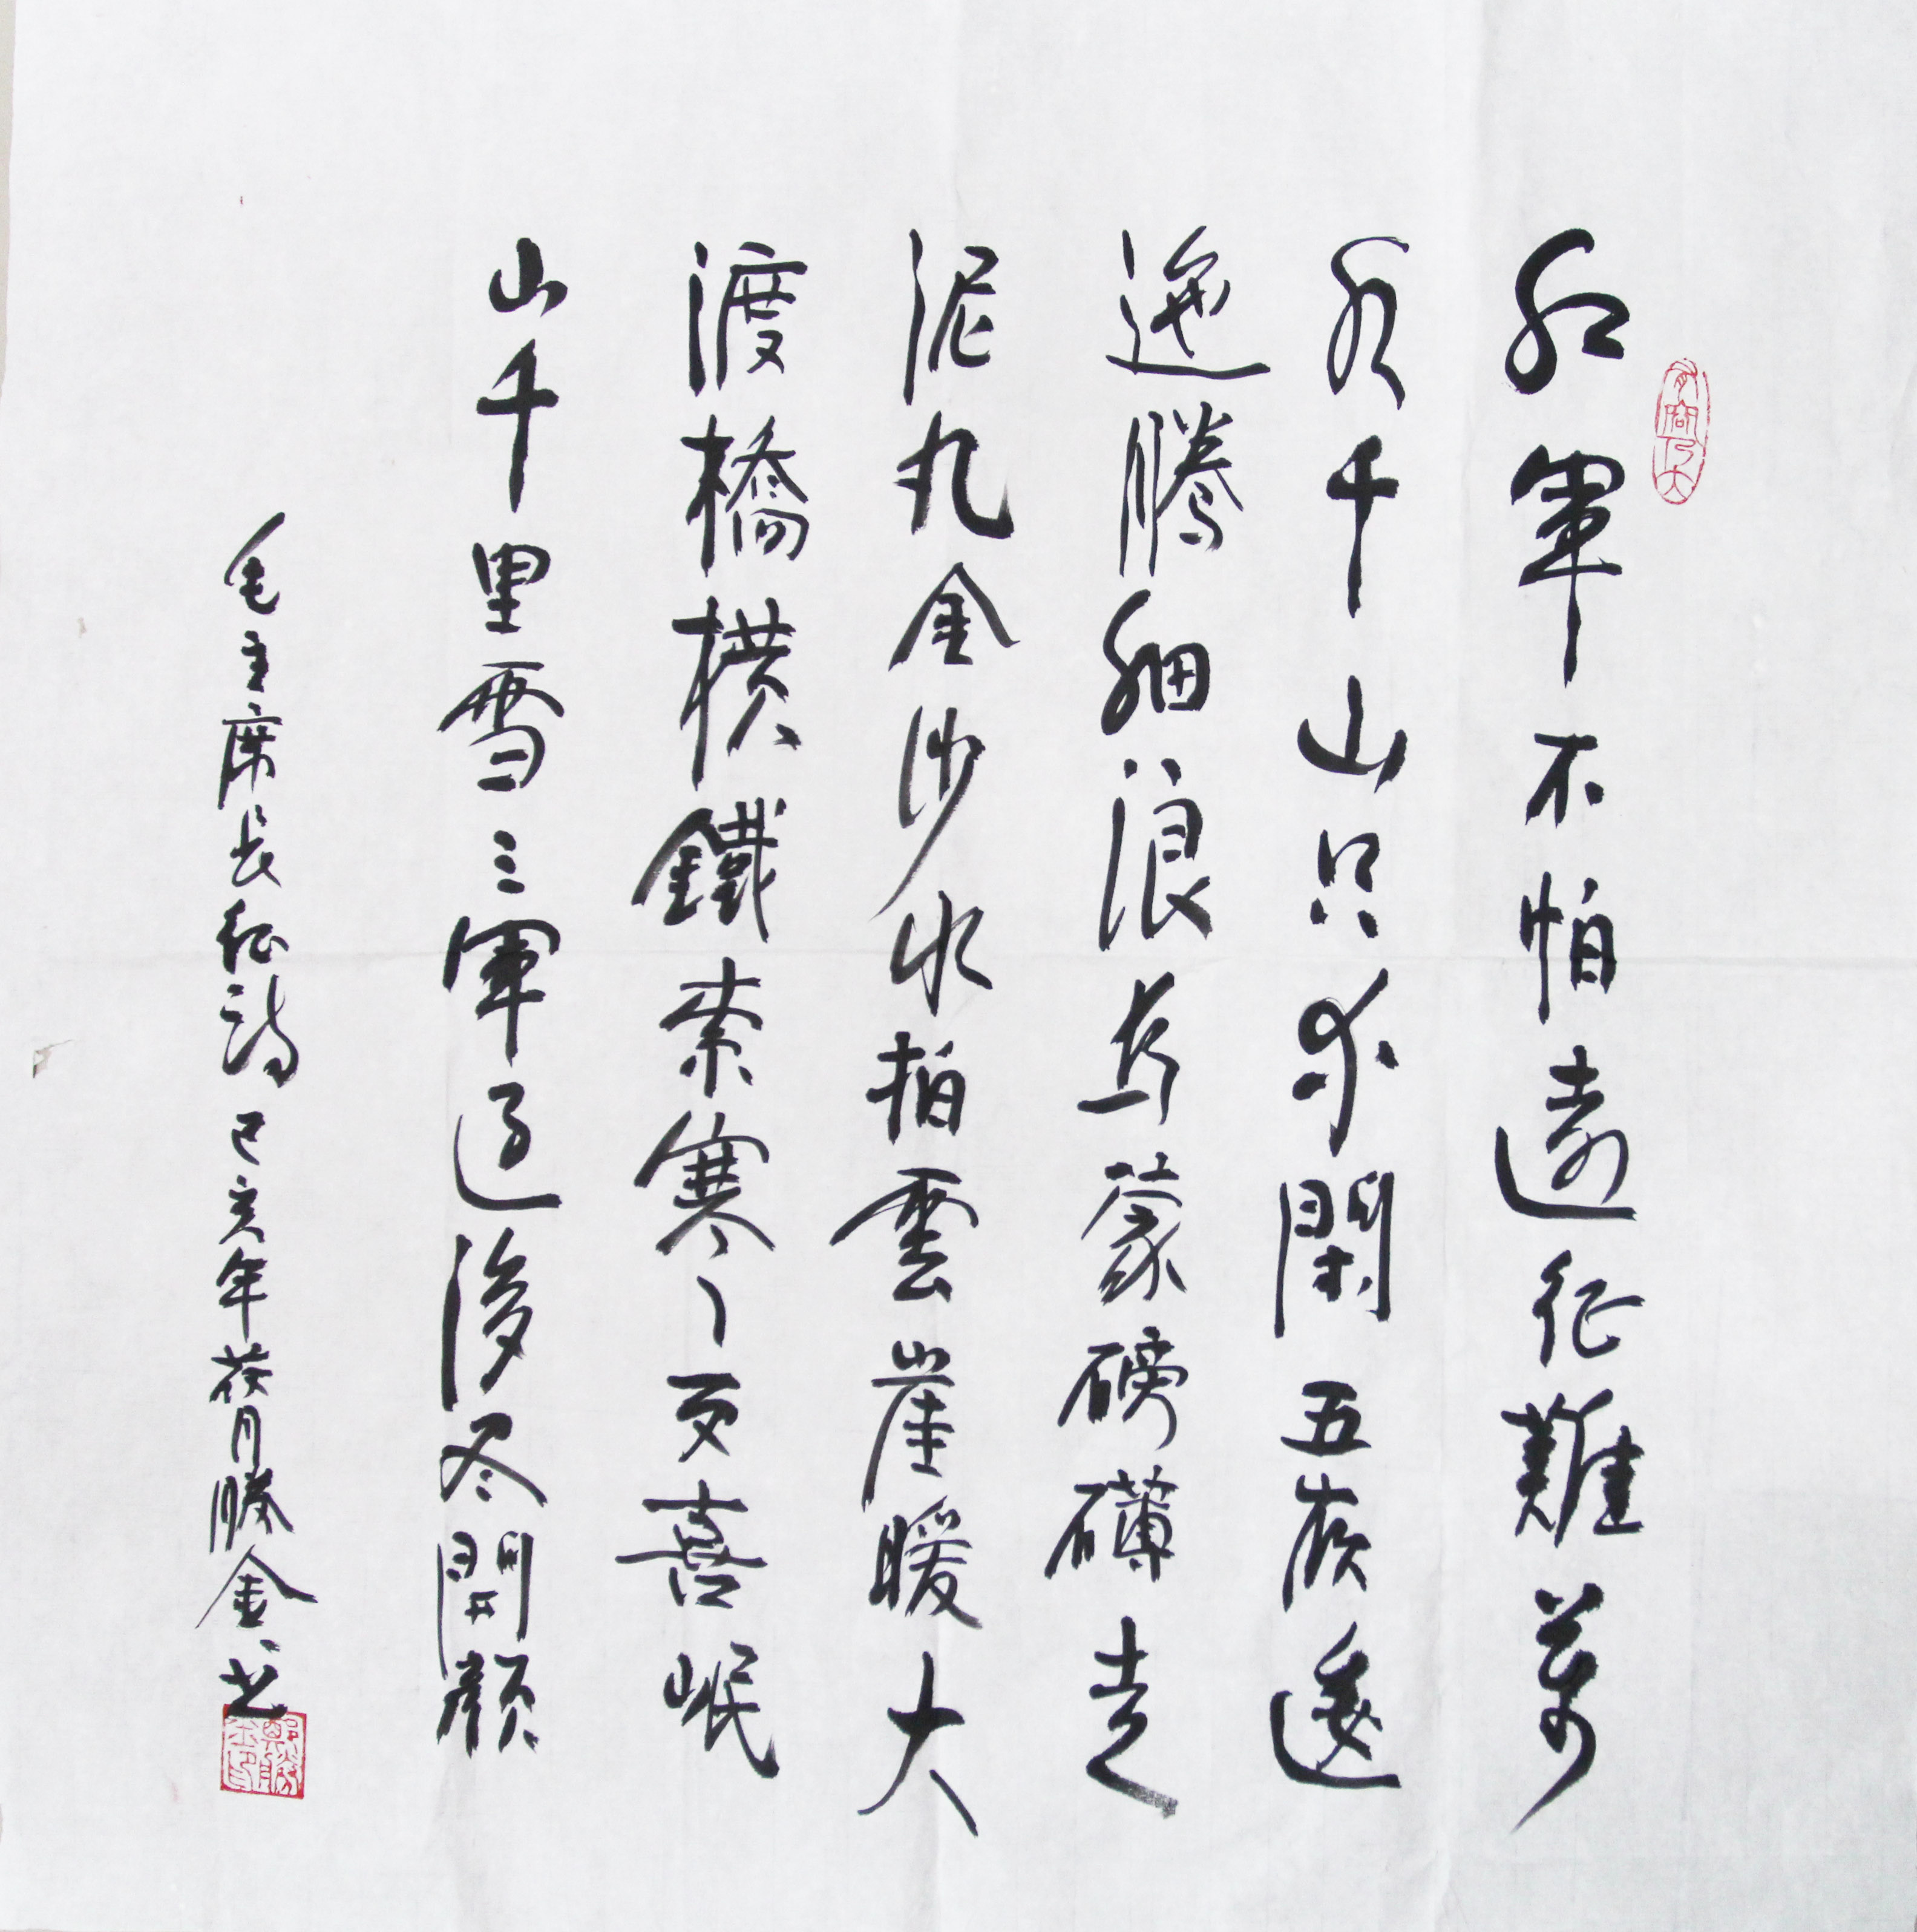 有容乃大
紅軍不怕遠征難萬
水千山只等閑五嶺逶
迤騰細浪烏蒙磅礴走
泥丸金沙水拍雲崖暖大
渡橋橫鐵索寒更喜岷
山千里雪三軍過後尽開顏
毛主席長征詩己亥年月勝金书
鄭勝金印